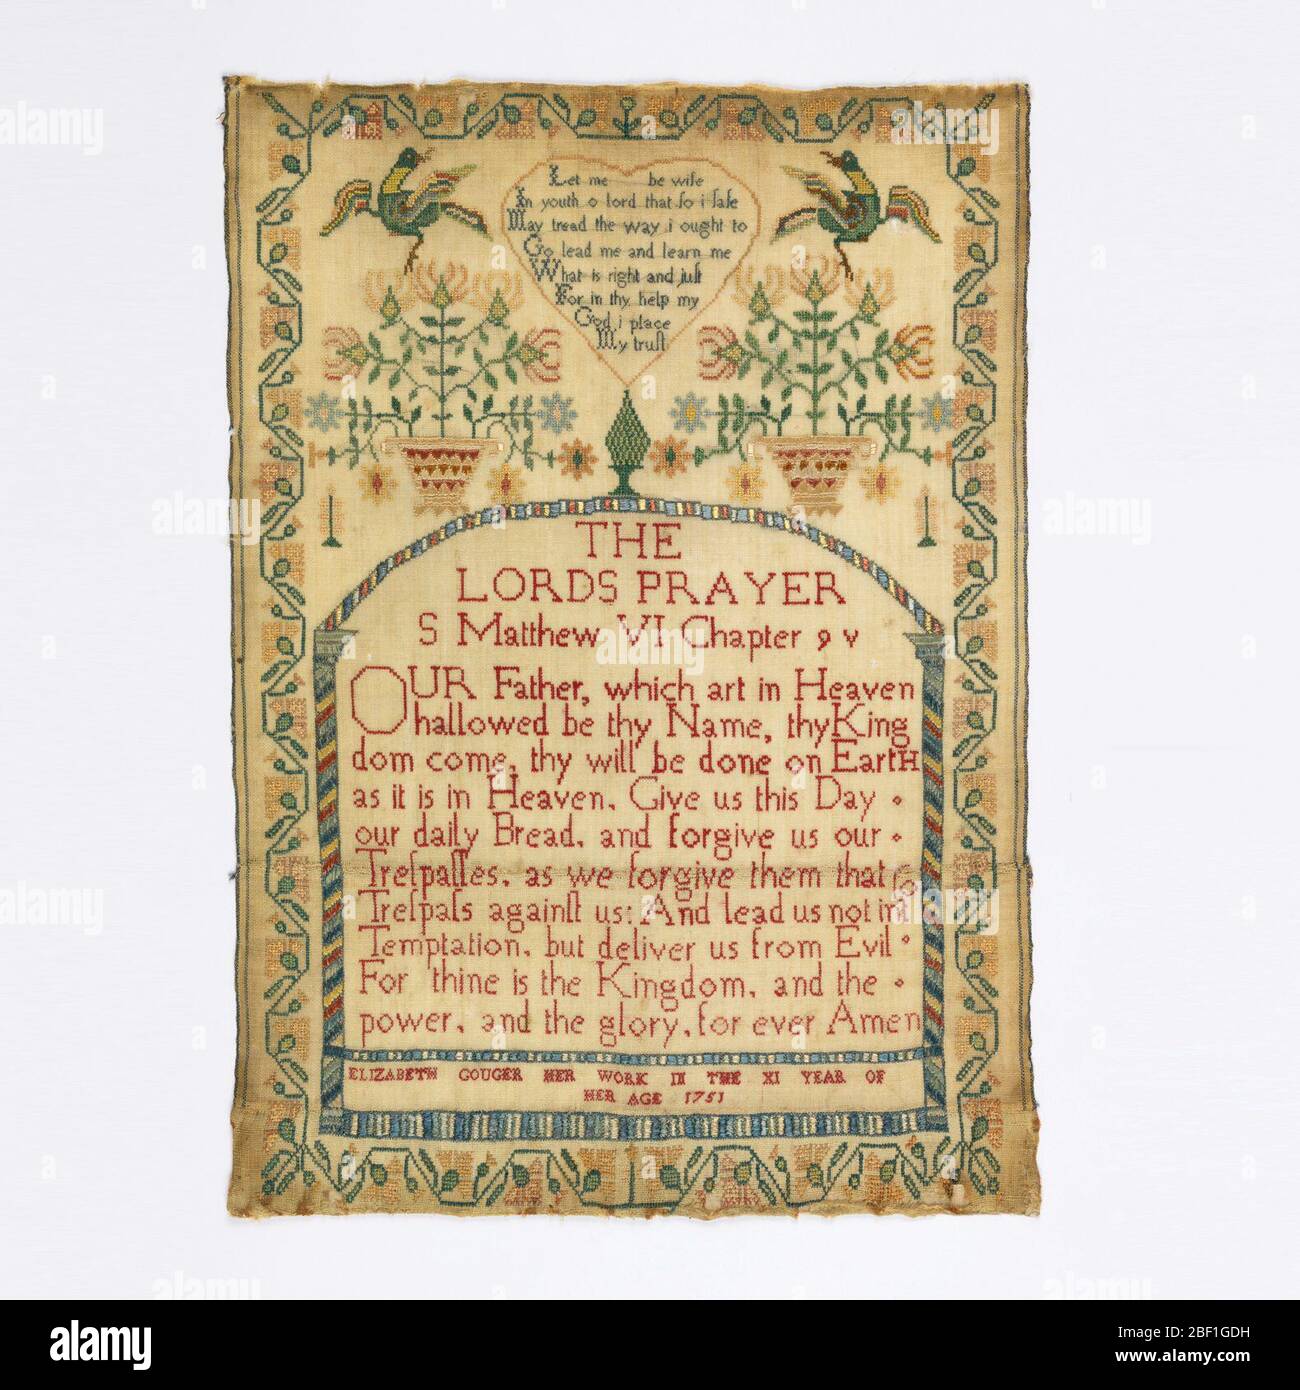 Let me be wiſe
In youth o lord that ſo i ſafe
May tread the way i ought to
Go lead me and learn me
What is right and juſt
For in thy help my
God i place
My truſt
THE
LORDS PRAYER
S Matthew VI Chapter 9 v
OUR Father, which art in Heaven
hallowed be thy Name, thy King
dom come, thy will be done on EartH
as it is in Heaven. Give us this Day
our daily Bread, and forgive us our
Treſpaſſes, as we forgive them that
Treſpaſs againſt us: And lead us not int
Temptation, but deliver us from Evil
For thine is the Kingdom, and the
power, and the glory, for ever Amen
ELIZABETH GOUGER HER WORK IN THE XI YEAR OF
HER AGE 1751
alamy
Image ID: 2BF1GDH
www.alamy.com